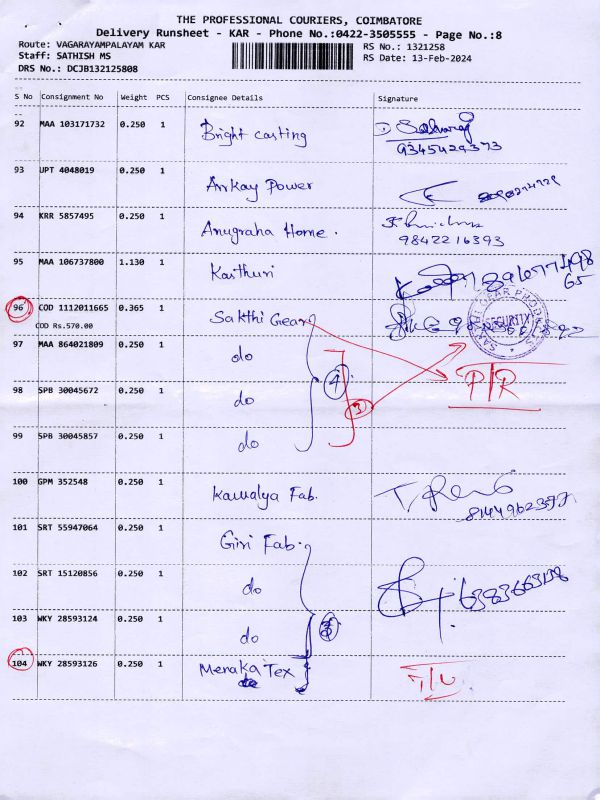 THE PROFESSIONAL COURIERS, COIMBATORE
Delivery Runsheet - KAR - Phone No.:0422-3505555 - Page No.:8
Route: VAGARAYAMPALAYAM KAR
RS No.: 1321258
Staff: SATHISH MS
RS Date: 13-Feb-2024
DRS No.: DCJB132125808
S No Consignment No Weight PCS Consignee Details Signature
92 MAA 103171732 0.250 1 Bright casting
9345429373
93 UPT 4048019 0.250 1 Arikay Power
94 KRR 5857495 0.250 1 Anugraha Home.
9842216393
95 MAA 106737800 1.130 1 Kasthuri
96 COD 1112011665 0.365 1 Sakthi Gear
COD Rs.570.00
SECURITY
97 MAA 864021809 0.250 1 do
4
3
P/R
98 SPB 30045672 0.250 1 do
99 SPB 30045857 0.250 1 do
100 GPM 352548 0.250 1 Kawalya Fab.
101 SRT 55947064 0.250 1 Giri Fab.
102 SRT 15120856 0.250 1 do
6383663138
103 WKY 28593124 0.250 1 do
104 WKY 28593126 0.250 1 Menaka Tex
T/U